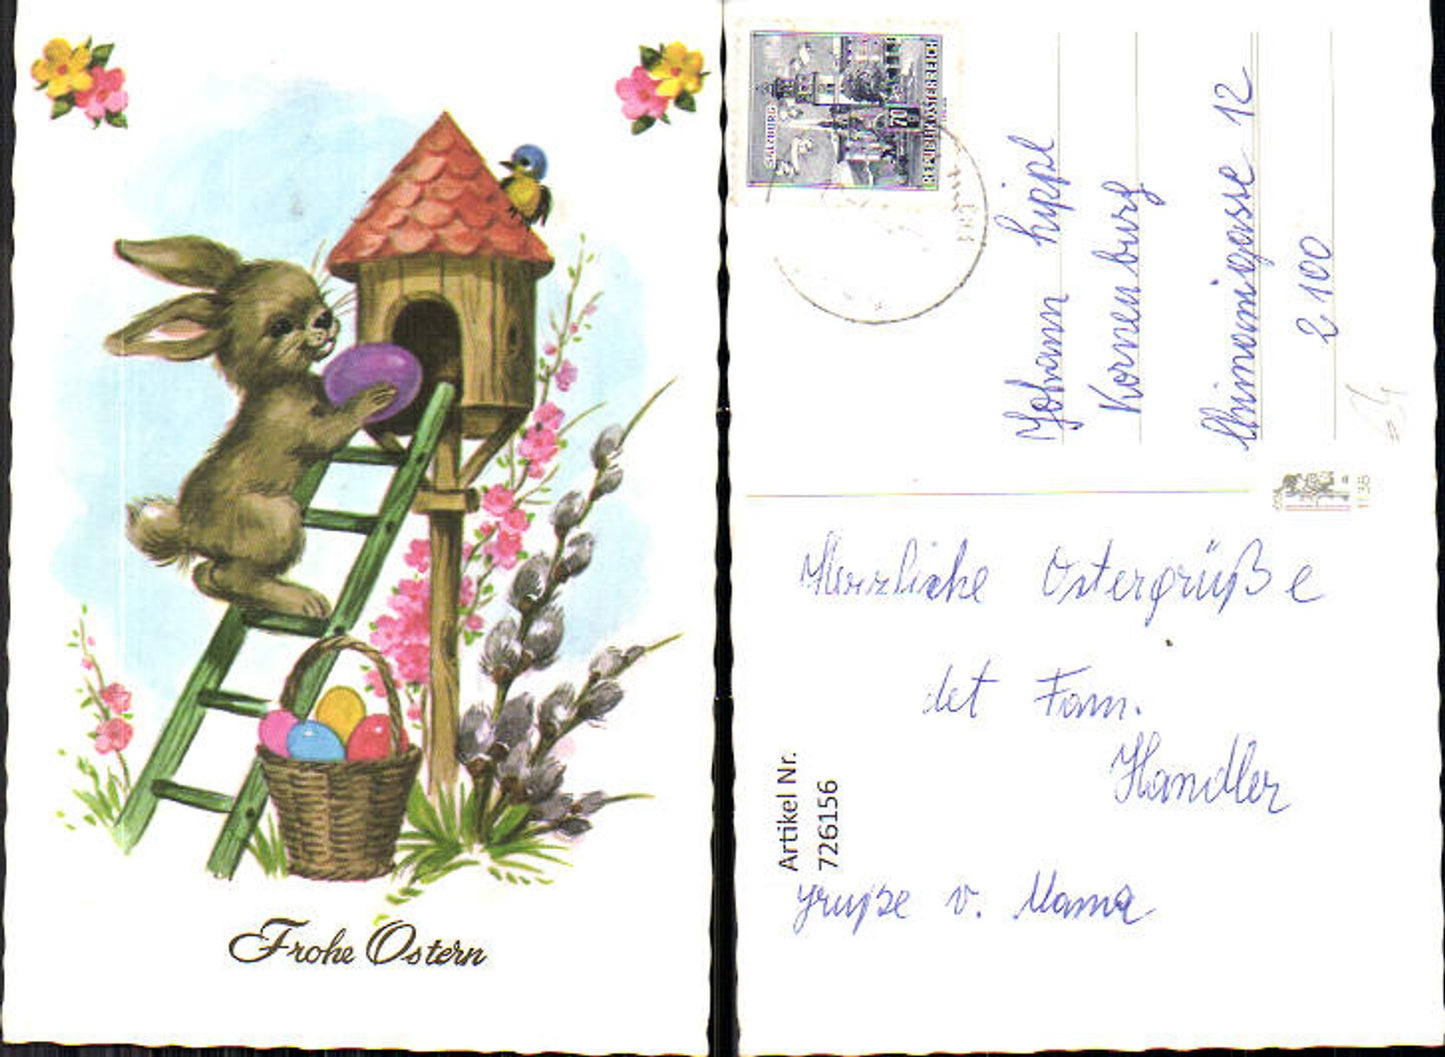 Frohe Ostern
SALZBURG
70
REPUBLIK ÖSTERREICH
Johann Lippl
Korneuburg
12
2100
1138
Herzliche Ostergrüße
det Fam.
Handler
Artikel Nr.
726156
gruße v. Mama